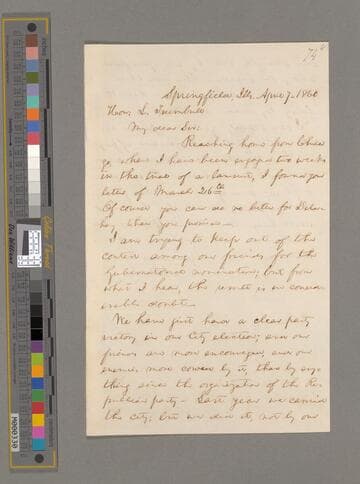 74
Springfield, Ills. April 7. 1860
Hon: L. Trumbull
My dear Sir:
Reaching home from Chica-
go, where I have been engaged two weeks
in the trial of a lawsuit, I found your
letter of March 26th
Of course you can do no better for Delahay
than you promise—
I am trying to keep out of the
contest among our friends for the
Gubernatorial nomination; but from
what I hear, the result is in consid-
erable doubt—
We have just had a clear party
victory in our City election; and our
friends are more encouraged, and our
enemies more cowed by it, than by any-
thing since the organization of the Re-
publican party— Last year we carried
the city; but we did it, not by our
Color Chart
M000330